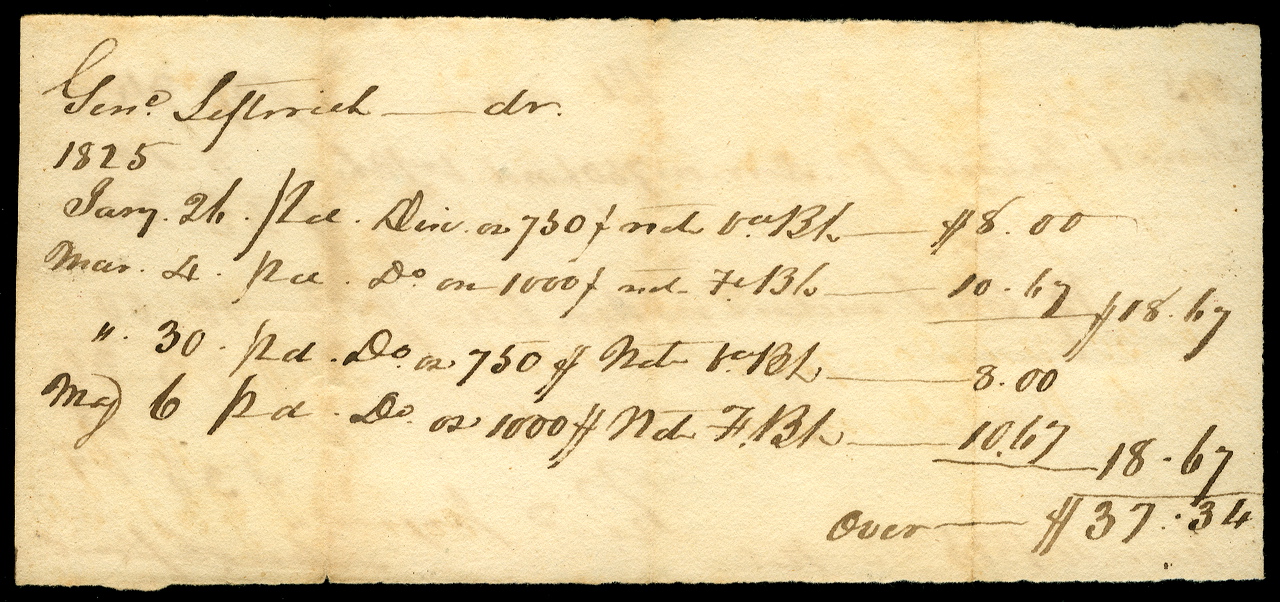 Genl. Leftwich — dr.
1825
Jany. 26. pd. Dis. on 750$ note Va. Bk — $8.00
Mar. 4. pd. Do on 1000$ note F. Bk — 10.67 $18.67
". 30. pd. Do. on 750$ Note Va. Bk — 8.00
May 6 pd. Do. on 1000$ Note F. Bk — 10.67 18.67
Over — $37.34